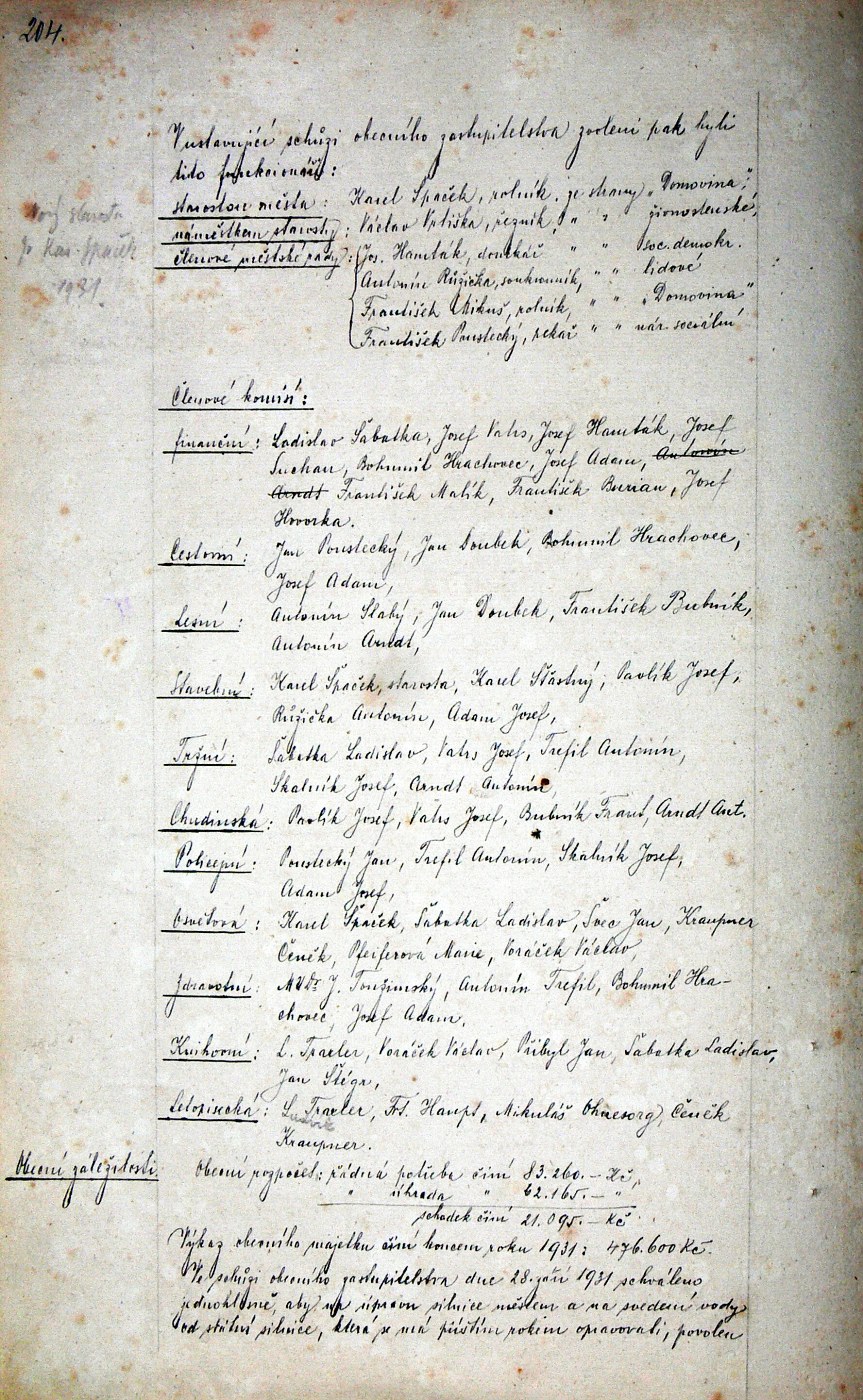 204.
V ustavující schůzi obecního zastupitelstva zvoleni pak byli
tito funkcionáři:
starostou města: Karel Špaček, rolník, ze strany „Domovina",
náměstkem starosty: Václav Vrliška, řezník, " " živnostenské,
členové městské rady: Jos. Hamták, domkář " " soc. demokr.
Antonín Růžička, soukromník, " " lidové
František Mikuš, rolník, " " „Domovina"
František Poustecký, pekař " " nár. sociální
Nový starosta
p. Kar. Špaček
1931
Členové komisí:
finanční: Ladislav Šabatka, Josef Vahs, Josef Hamták, Josef
Suchan, Bohumil Hrachovec, Josef Adam, Antonín
Arndt František Malík, František Burian, Josef
Hovorka.
Cestovní: Jan Poustecký, Jan Doubek, Bohumil Hrachovec,
Josef Adam,
Lesní: Antonín Slabý, Jan Doubek, František Bubník,
Antonín Arndt,
Stavební: Karel Špaček, starosta, Karel Šťastný, Pavlík Josef,
Růžička Antonín, Adam Josef,
Tržní: Šabatka Ladislav, Vahs Josef, Trefil Antonín,
Skalník Josef, Arndt Antonín,
Chudinská: Pavlík Josef, Vahs Josef, Bubník Frant, Arndt Ant.
Policejní: Poustecký Jan, Trefil Antonín, Skalník Josef,
Adam Josef,
Osvětová: Karel Špaček, Šabatka Ladislav, Švec Jan, Kraupner
Čeněk, Pfeiferová Marie, Voráček Václav,
Zdravotní: MUDr J. Toužimský, Antonín Trefil, Bohumil Hra-
chovec, Josef Adam.
Knihovní: L. Traxler, Voráček Václav, Přibyl Jan, Šabatka Ladislav,
Jan Štégr,
Letopisecká: L. Traxler, Frt. Haupt, Mikuláš Ohnesorg, Čeněk
Ludvík
Kraupner.
Obecní záležitosti
Obecní rozpočet: řádná potřeba činí 83.260.– Kč,
" úhrada " 62.165.– "
schodek činí 21.095.– Kč.
Výkaz obecního majetku činí koncem roku 1931: 476.600 Kč.
Ve schůzi obecního zastupitelstva dne 28. září 1931 schváleno
jednohlasně, aby na úpravu silnice městem a na svedení vody
od státní silnice, která se má příštím rokem opravovati, povolen